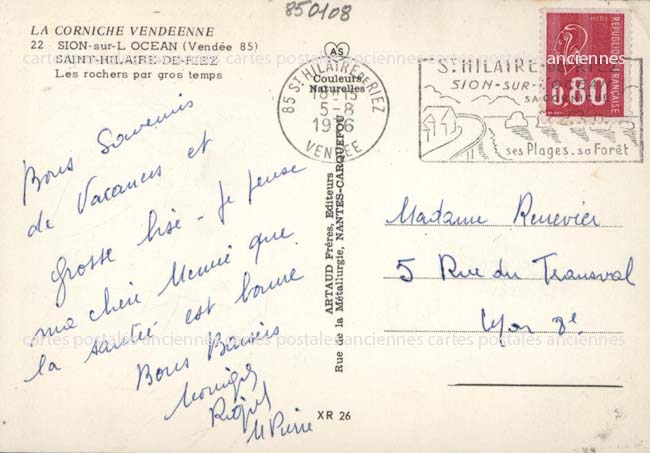 850108
LA CORNICHE VENDEENNE
22 SION-sur-L OCEAN (Vendée 85)
SAINT-HILAIRE-DE-RIEZ
Les rochers par gros temps
AS
Couleurs
Naturelles
85 ST HILAIRE DE RIEZ
18H15
5-8
1976
VENDÉE
ST HILAIRE-DE-RIEZ
SION-SUR-L'OCÉAN
SA CORNICHE
ses Plages. sa Forêt
REPUBLIQUE FRANÇAISE
POSTES
0,80
Bons Souvenirs
de Vacances et
Grosse bise - Je pense
ma chère Mémée que
la santé est bonne
Bons Baisers
Monique
M Pierre
ARTAUD Frères, Editeurs
Rue de la Métallurgie, NANTES-CARQUEFOU
XR 26
Madame Renevier
5 Rue du Transval
Lyon 8e
cartes postales anciennes cartes postales anciennes cartes postales anciennes